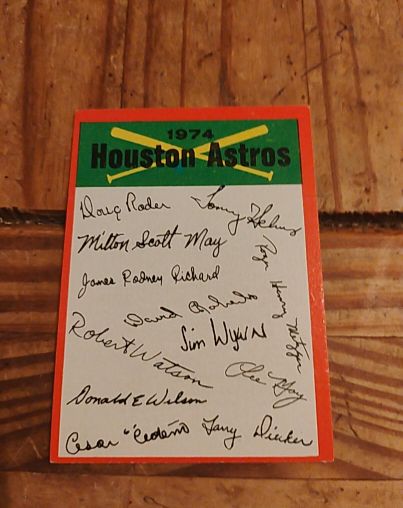 1974
Houston Astros
Doug Rader
Tommy Helms
Milton Scott May
Roger Henry Metzger
James Rodney Richard
David Roberts
Jim Wynn
Robert Watson
Lee May
Donald E Wilson
Cesar "Cedeño
Larry Dierker